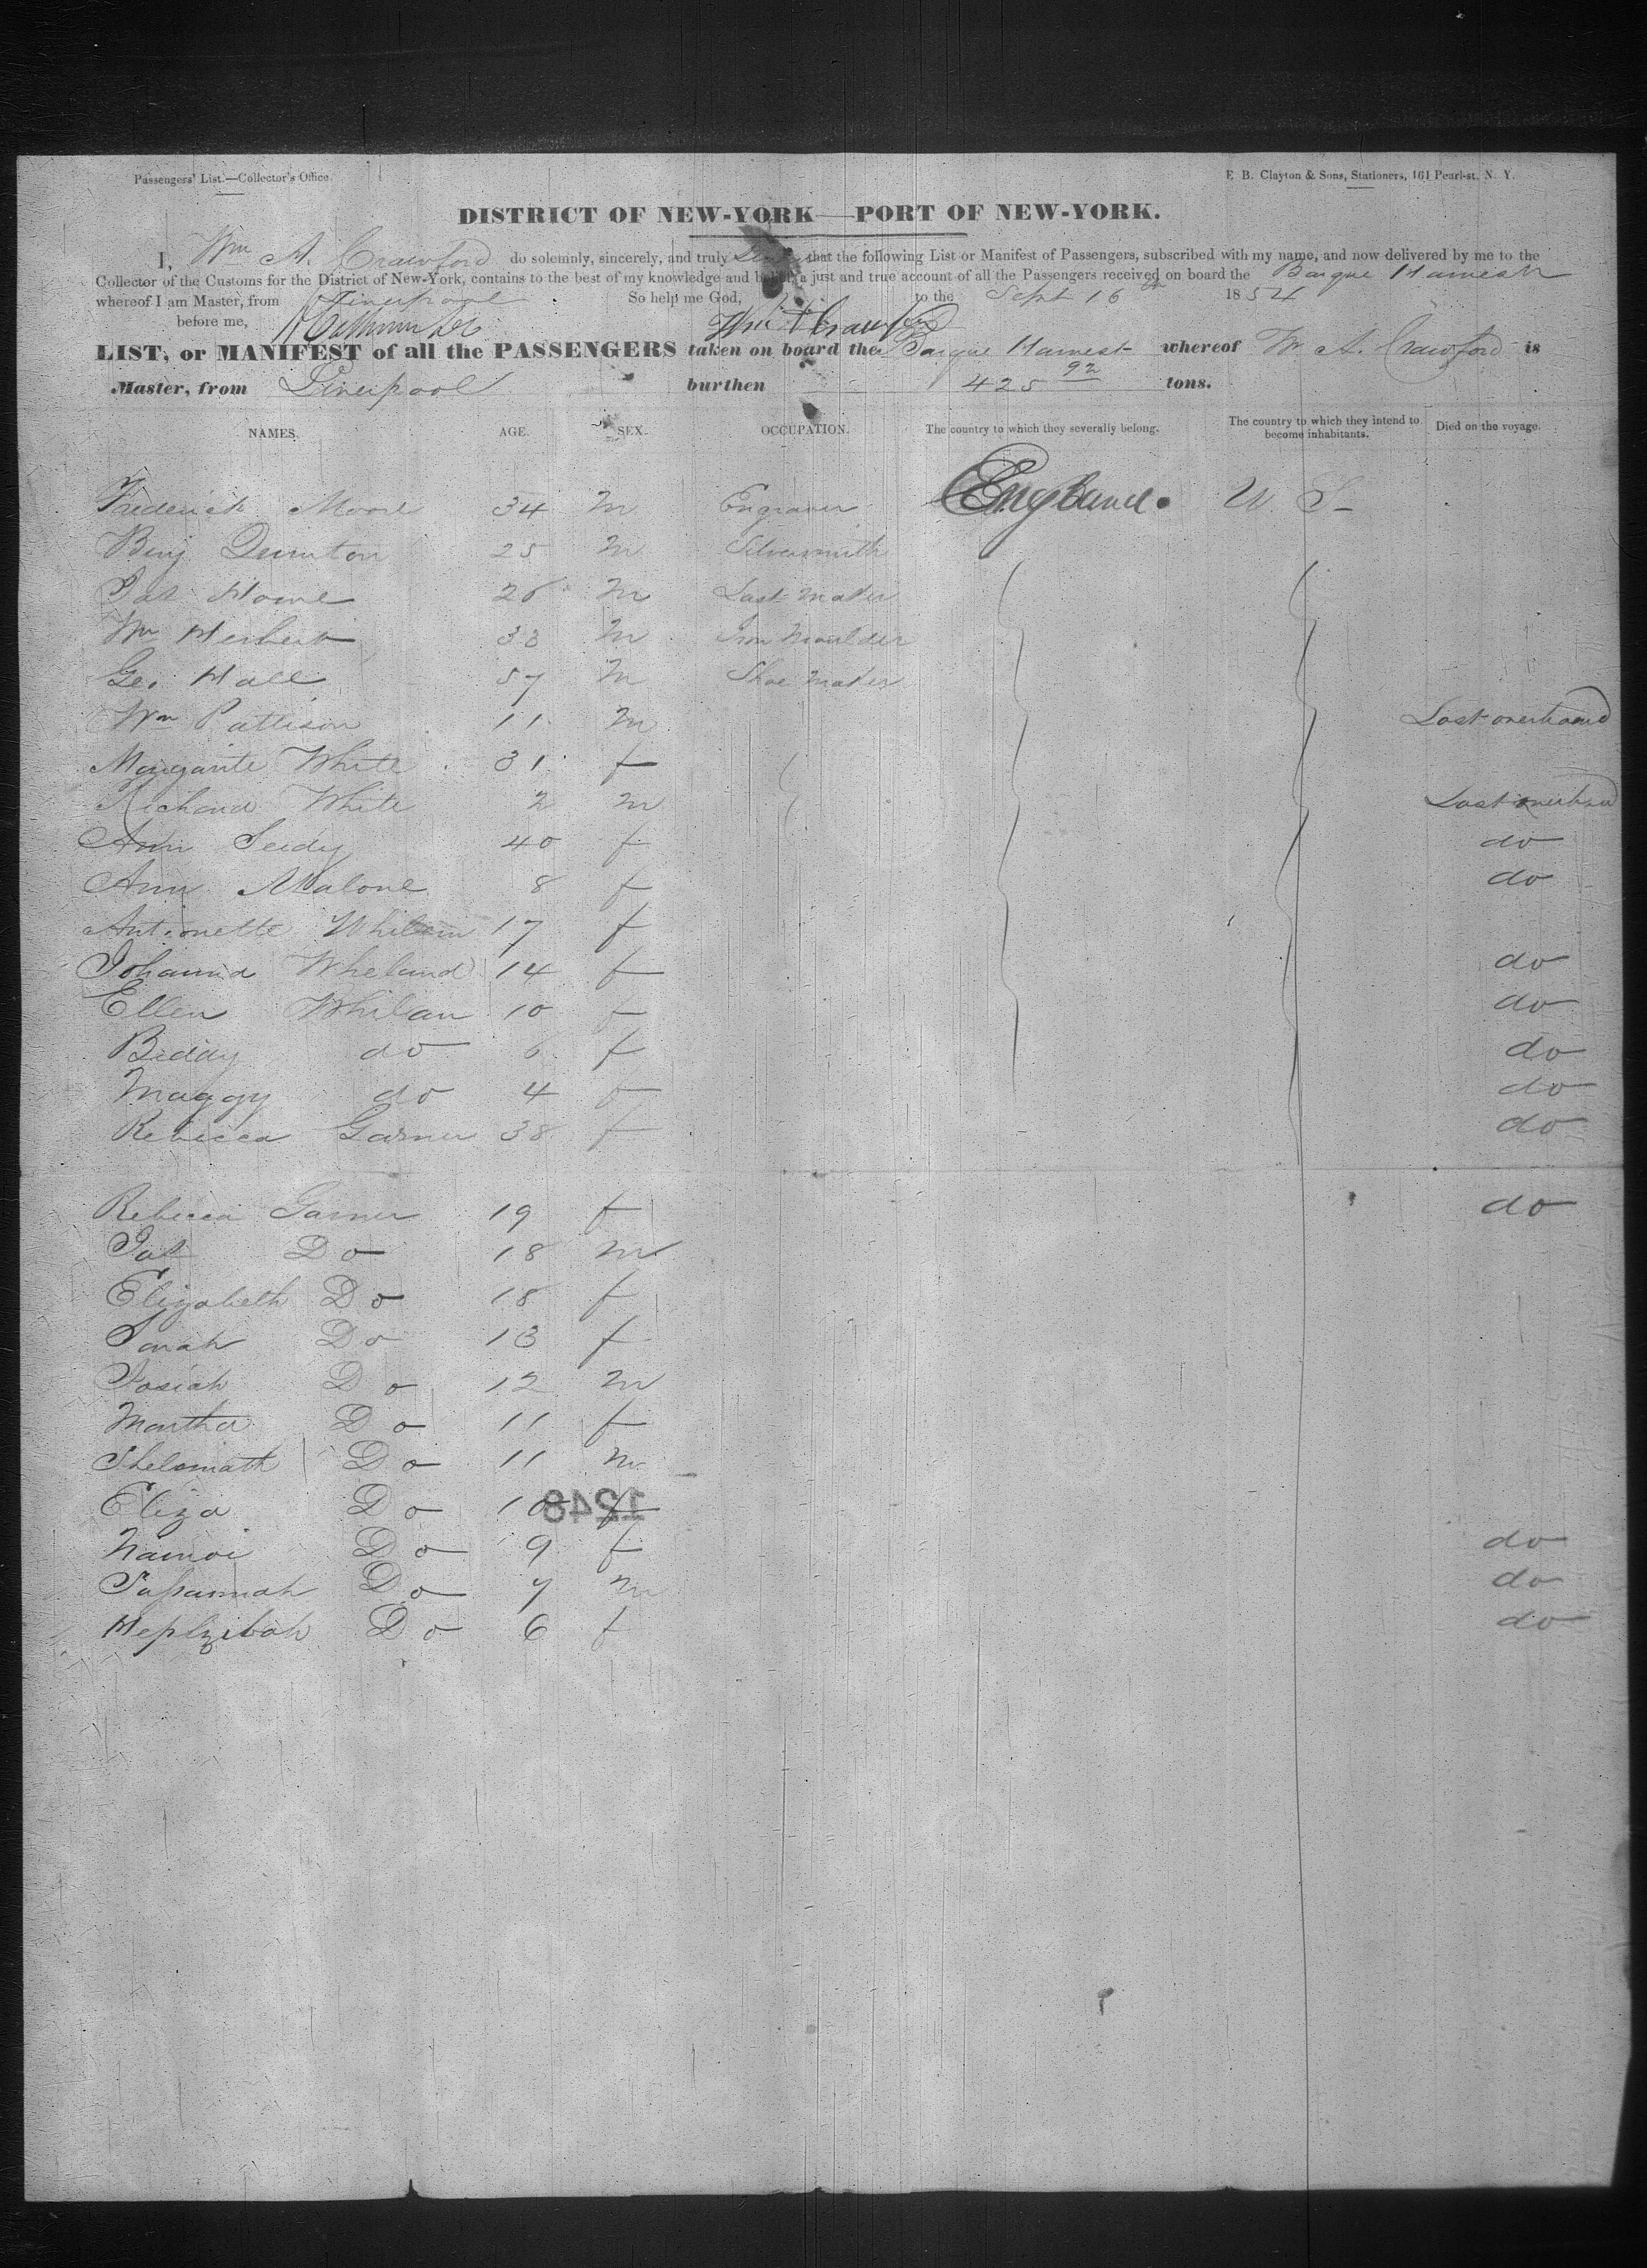 Passengers' List.—Collector's Office.
E. B. Clayton & Sons, Stationers, 161 Pearl-st. N. Y.
DISTRICT OF NEW-YORK—PORT OF NEW-YORK.
I, Wm A. Crawford do solemnly, sincerely, and truly that the following List or Manifest of Passengers, subscribed with my name, and now delivered by me to the
Collector of the Customs for the District of New-York, contains to the best of my knowledge and belief, a just and true account of all the Passengers received on board the Barque Harvest
whereof I am Master, from Liverpool So help me God, to the Sept 16th 1854
before me, Wm A Crawford
LIST, or MANIFEST of all the PASSENGERS taken on board the Barque Harvest whereof Wm A. Crawford is
Master, from Liverpool burthen 425 92 tons.
NAMES. AGE. SEX. OCCUPATION. The country to which they severally belong. The country to which they intend to become inhabitants. Died on the voyage.
Frederick Moore 34 m Engraver England. U S
Benj 25 m Silversmith
Jas Howe 26 m Last maker
Wm Herbert 33 m Iron Moulder
Geo. Hall 57 m Shoe maker
Wm Pattison 11 m Lost overboard
Margarite White 31 f
Richard White 2 m Lost overboard
Ann 40 f do
Ann Malone 8 f do
Antionette 17 f
Johanna Wheland 14 f do
Ellen Whilan 10 f do
Biddy do 6 f do
Maggy do 4 f do
Rebecca Garner 38 f do
Rebecca Garner 19 f do
Jas Do 18 m
Elizabeth Do 18 f
Sarah Do 13 f
Josiah Do 12 m
Martha Do 11 f
Shelomath Do 11 m
Eliza Do 10 f
1248
Namoi Do 9 f do
Susannah Do 7 m do
Hephzibah Do 6 f do